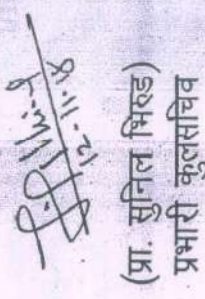 12-11-18
(प्रा. सुनिल भिरुड)
प्रभारी कुलसचिव